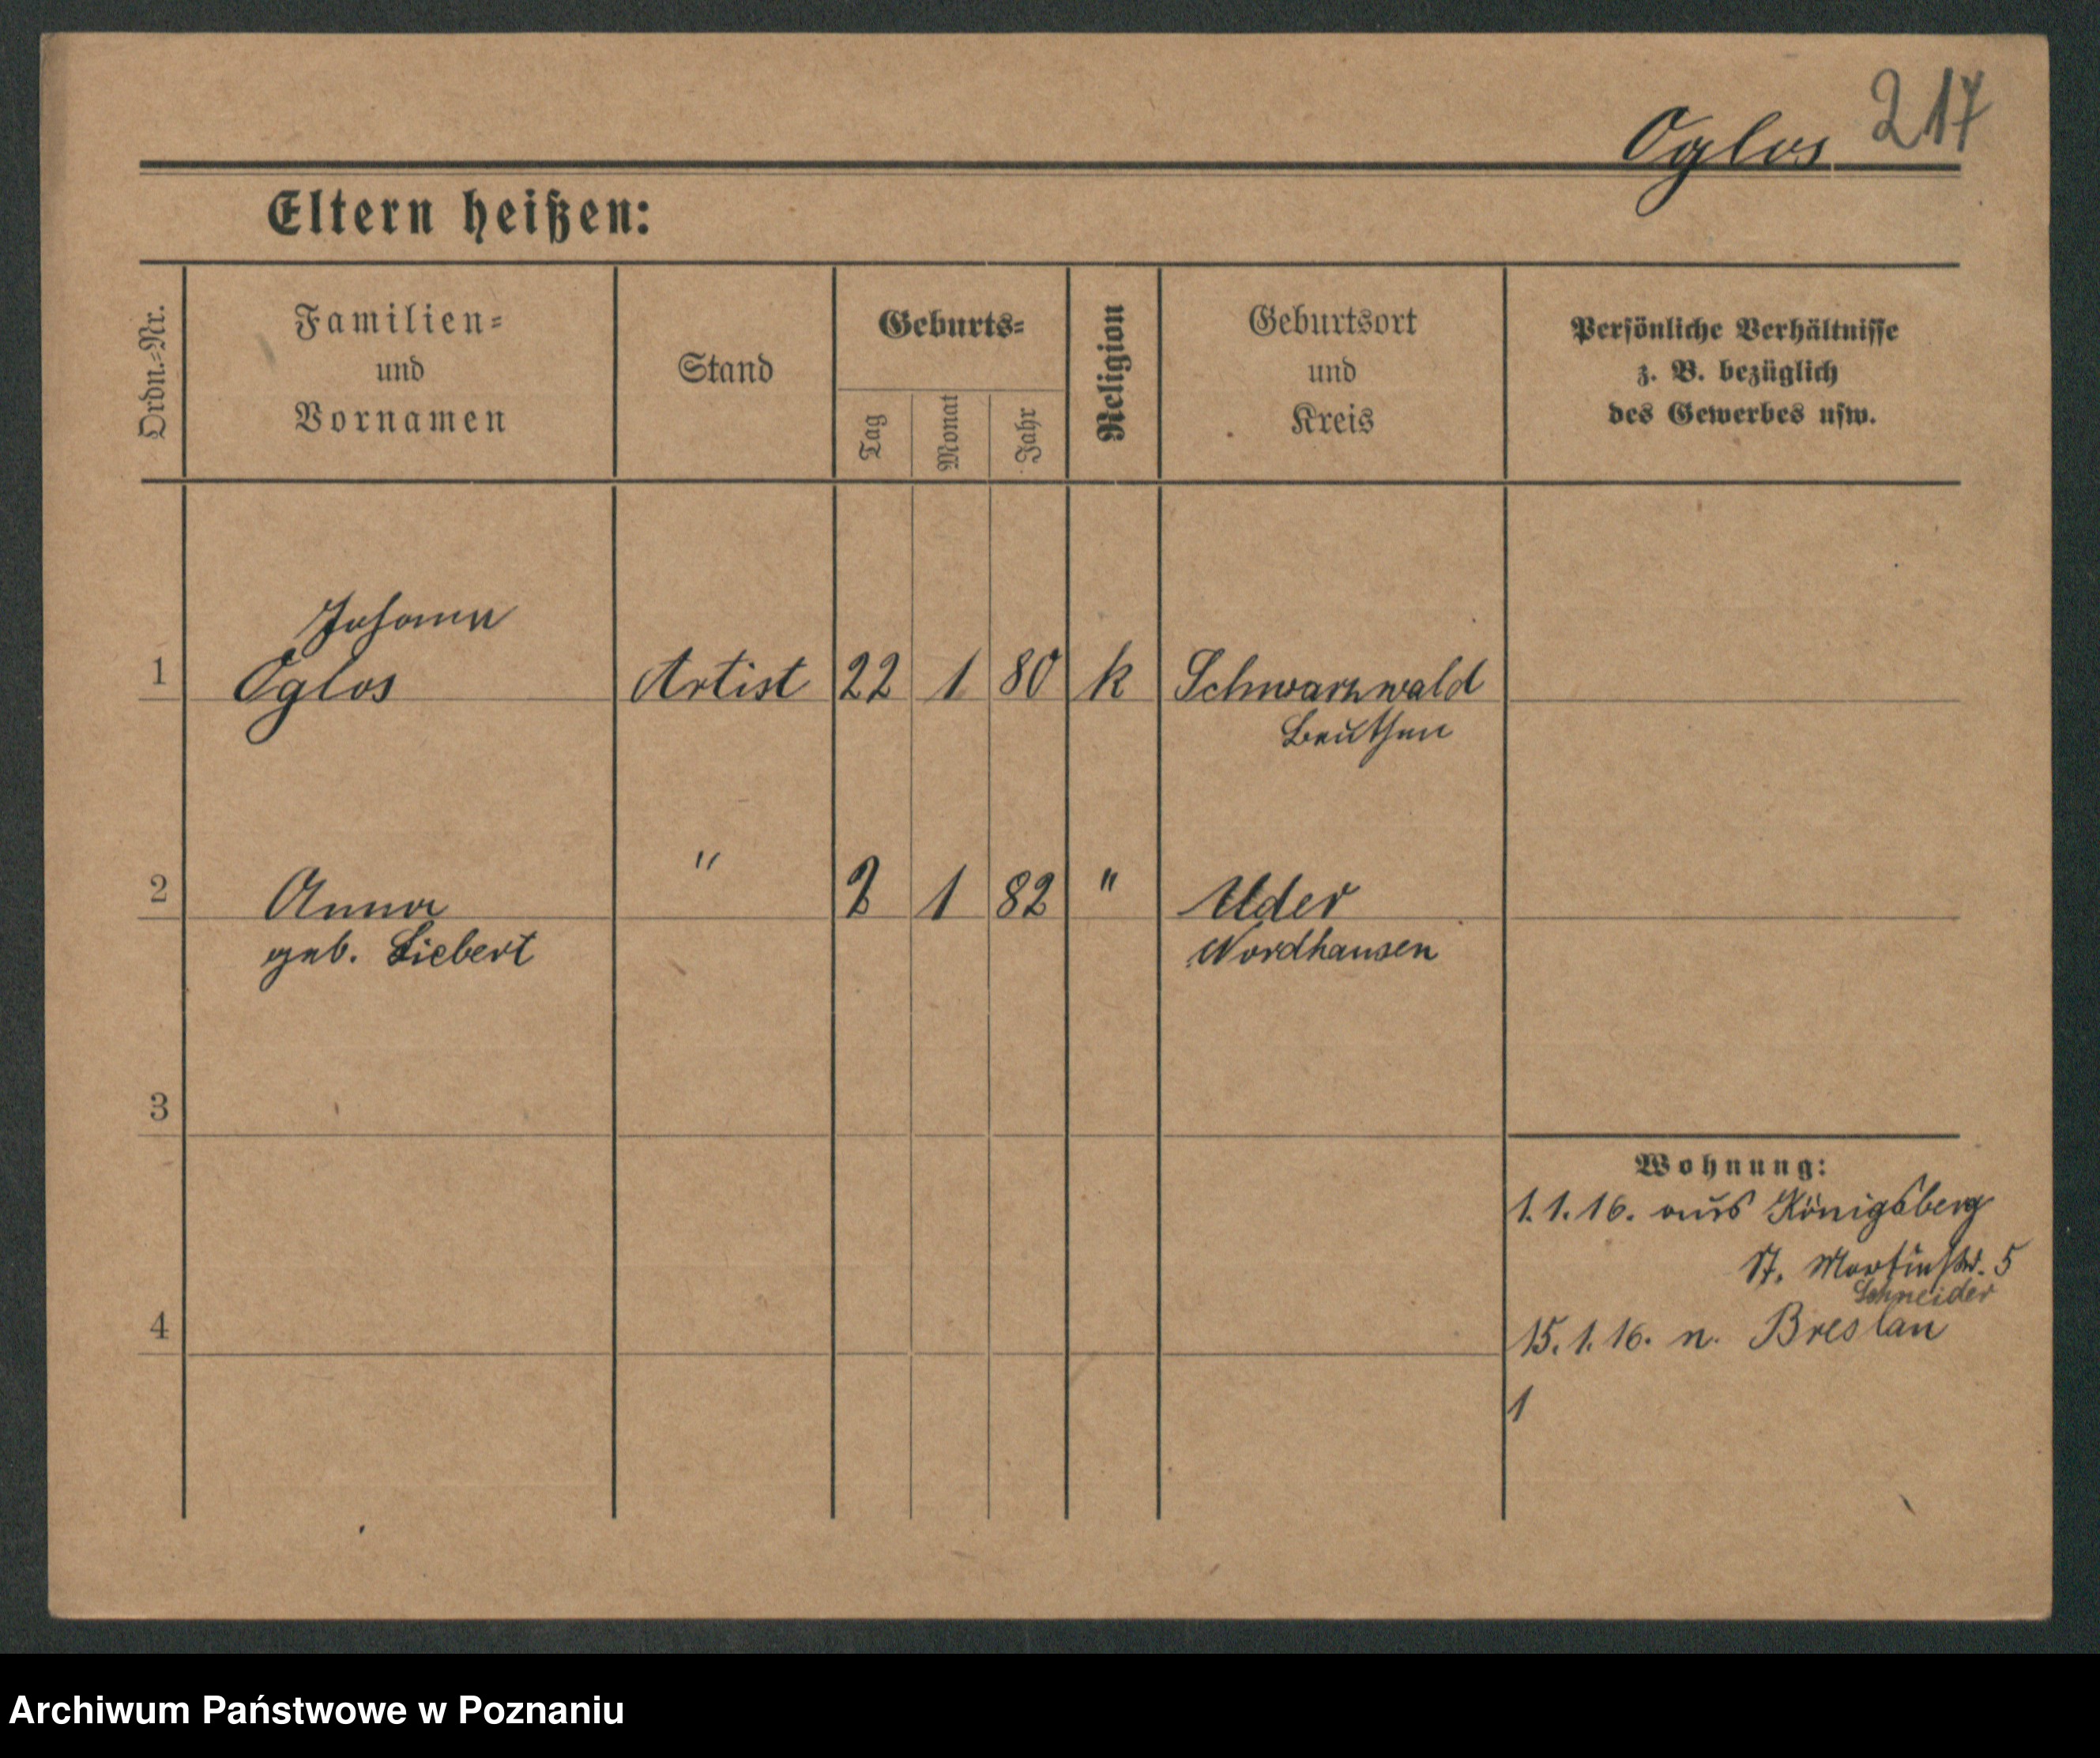 217
Oglos
Eltern heißen:
Ordn.-Nr.
Familien-
und
Vornamen
Stand
Geburts-
Tag
Monat
Jahr
Religion
Geburtsort
und
Kreis
Persönliche Verhältnisse
z. B. bezüglich
des Gewerbes usw.
Johann
1 Oglos Artist 22 1 80 k Schwarzwald
Beuthen
2 Anna " 2 1 82 " Uder
geb. Liebert Nordhausen
3
Wohnung:
1.1.16. aus Königsberg
St. Martinstr. 5
Schneider
4 15.1.16. n. Breslau
1
Archiwum Państwowe w Poznaniu